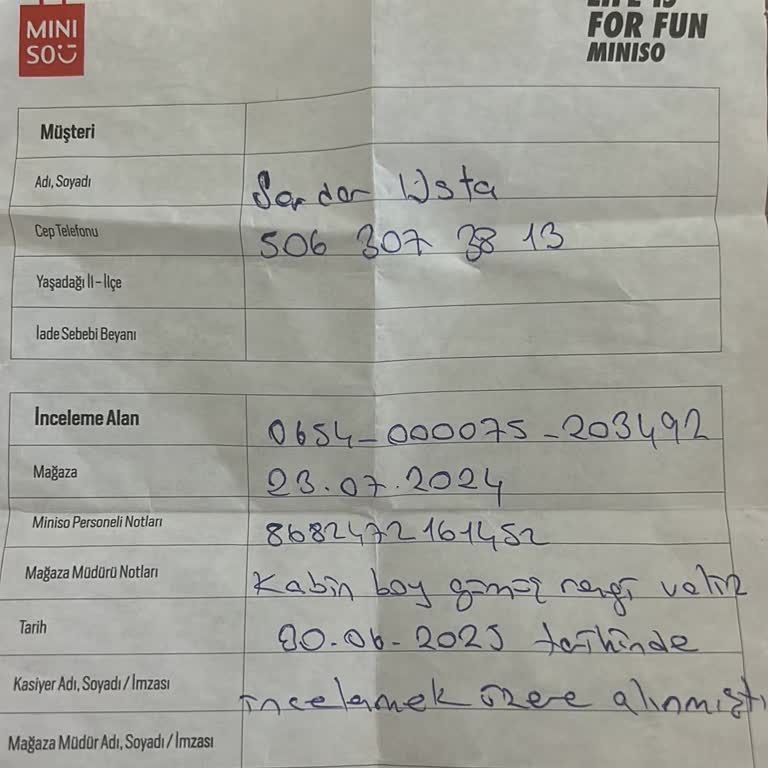 MINI
SO
LIFE IS
FOR FUN
MINISO
Müşteri
Adı, Soyadı Serdar Usta
Cep Telefonu 506 307 38 13
Yaşadağı İl – İlçe
İade Sebebi Beyanı
İnceleme Alan 0654-000075-203492
Mağaza 23.07.2024
Miniso Personeli Notları 8682472161452
Mağaza Müdürü Notları Kabin boy gümüş rengi valiz
Tarih 30.06-2025 tarihinde
Kasiyer Adı, Soyadı / İmzası incelemek üzere alınmıştı
Mağaza Müdür Adı, Soyadı / İmzası